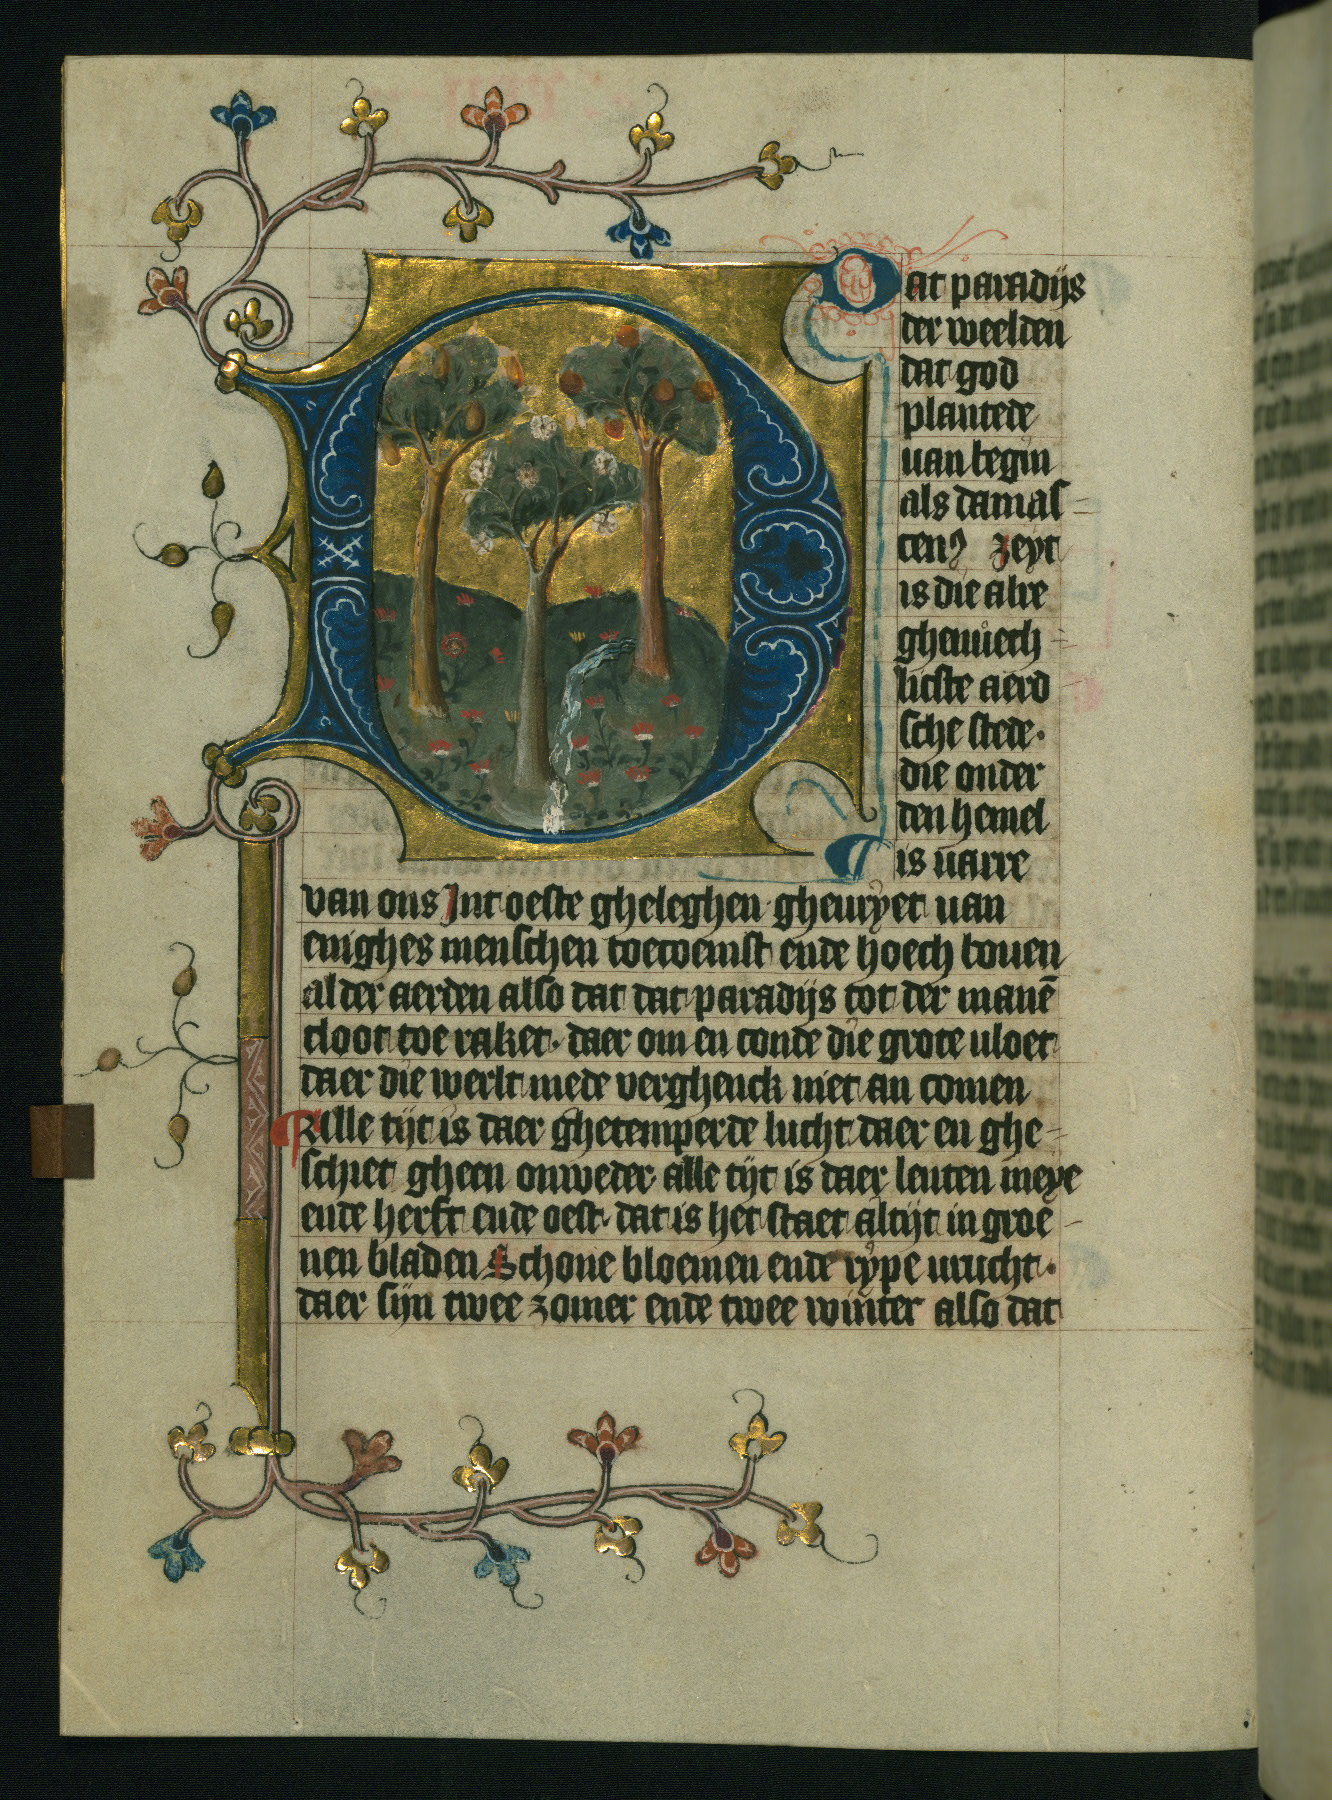 Dat paradijs
der weelden
dat god
plantede
uan begin
als damas
cenꝰ zeyt
is die alre
ghenuech
licste aerd
sche stede·
die onder
den hemel
is uarre
van ons Int oeste gheleghen gheuryet uan
enighes menschen toecoemst ende hoech bouen
al der aerden also dat dat paradijs tot der manē
cloot toe raket· daer om en conde die grote uloet
daer die werlt mede verghenck niet an comen
Alle tijt is daer ghetemperde lucht daer en ghe
schiet gheen onweder· alle tijt is daer lenten meye
ende herft ende oest· dat is het staet altijt in groe
nen bladen Schone bloemen ende rype urucht·
daer sijn twee zomer ende twee winter also dat